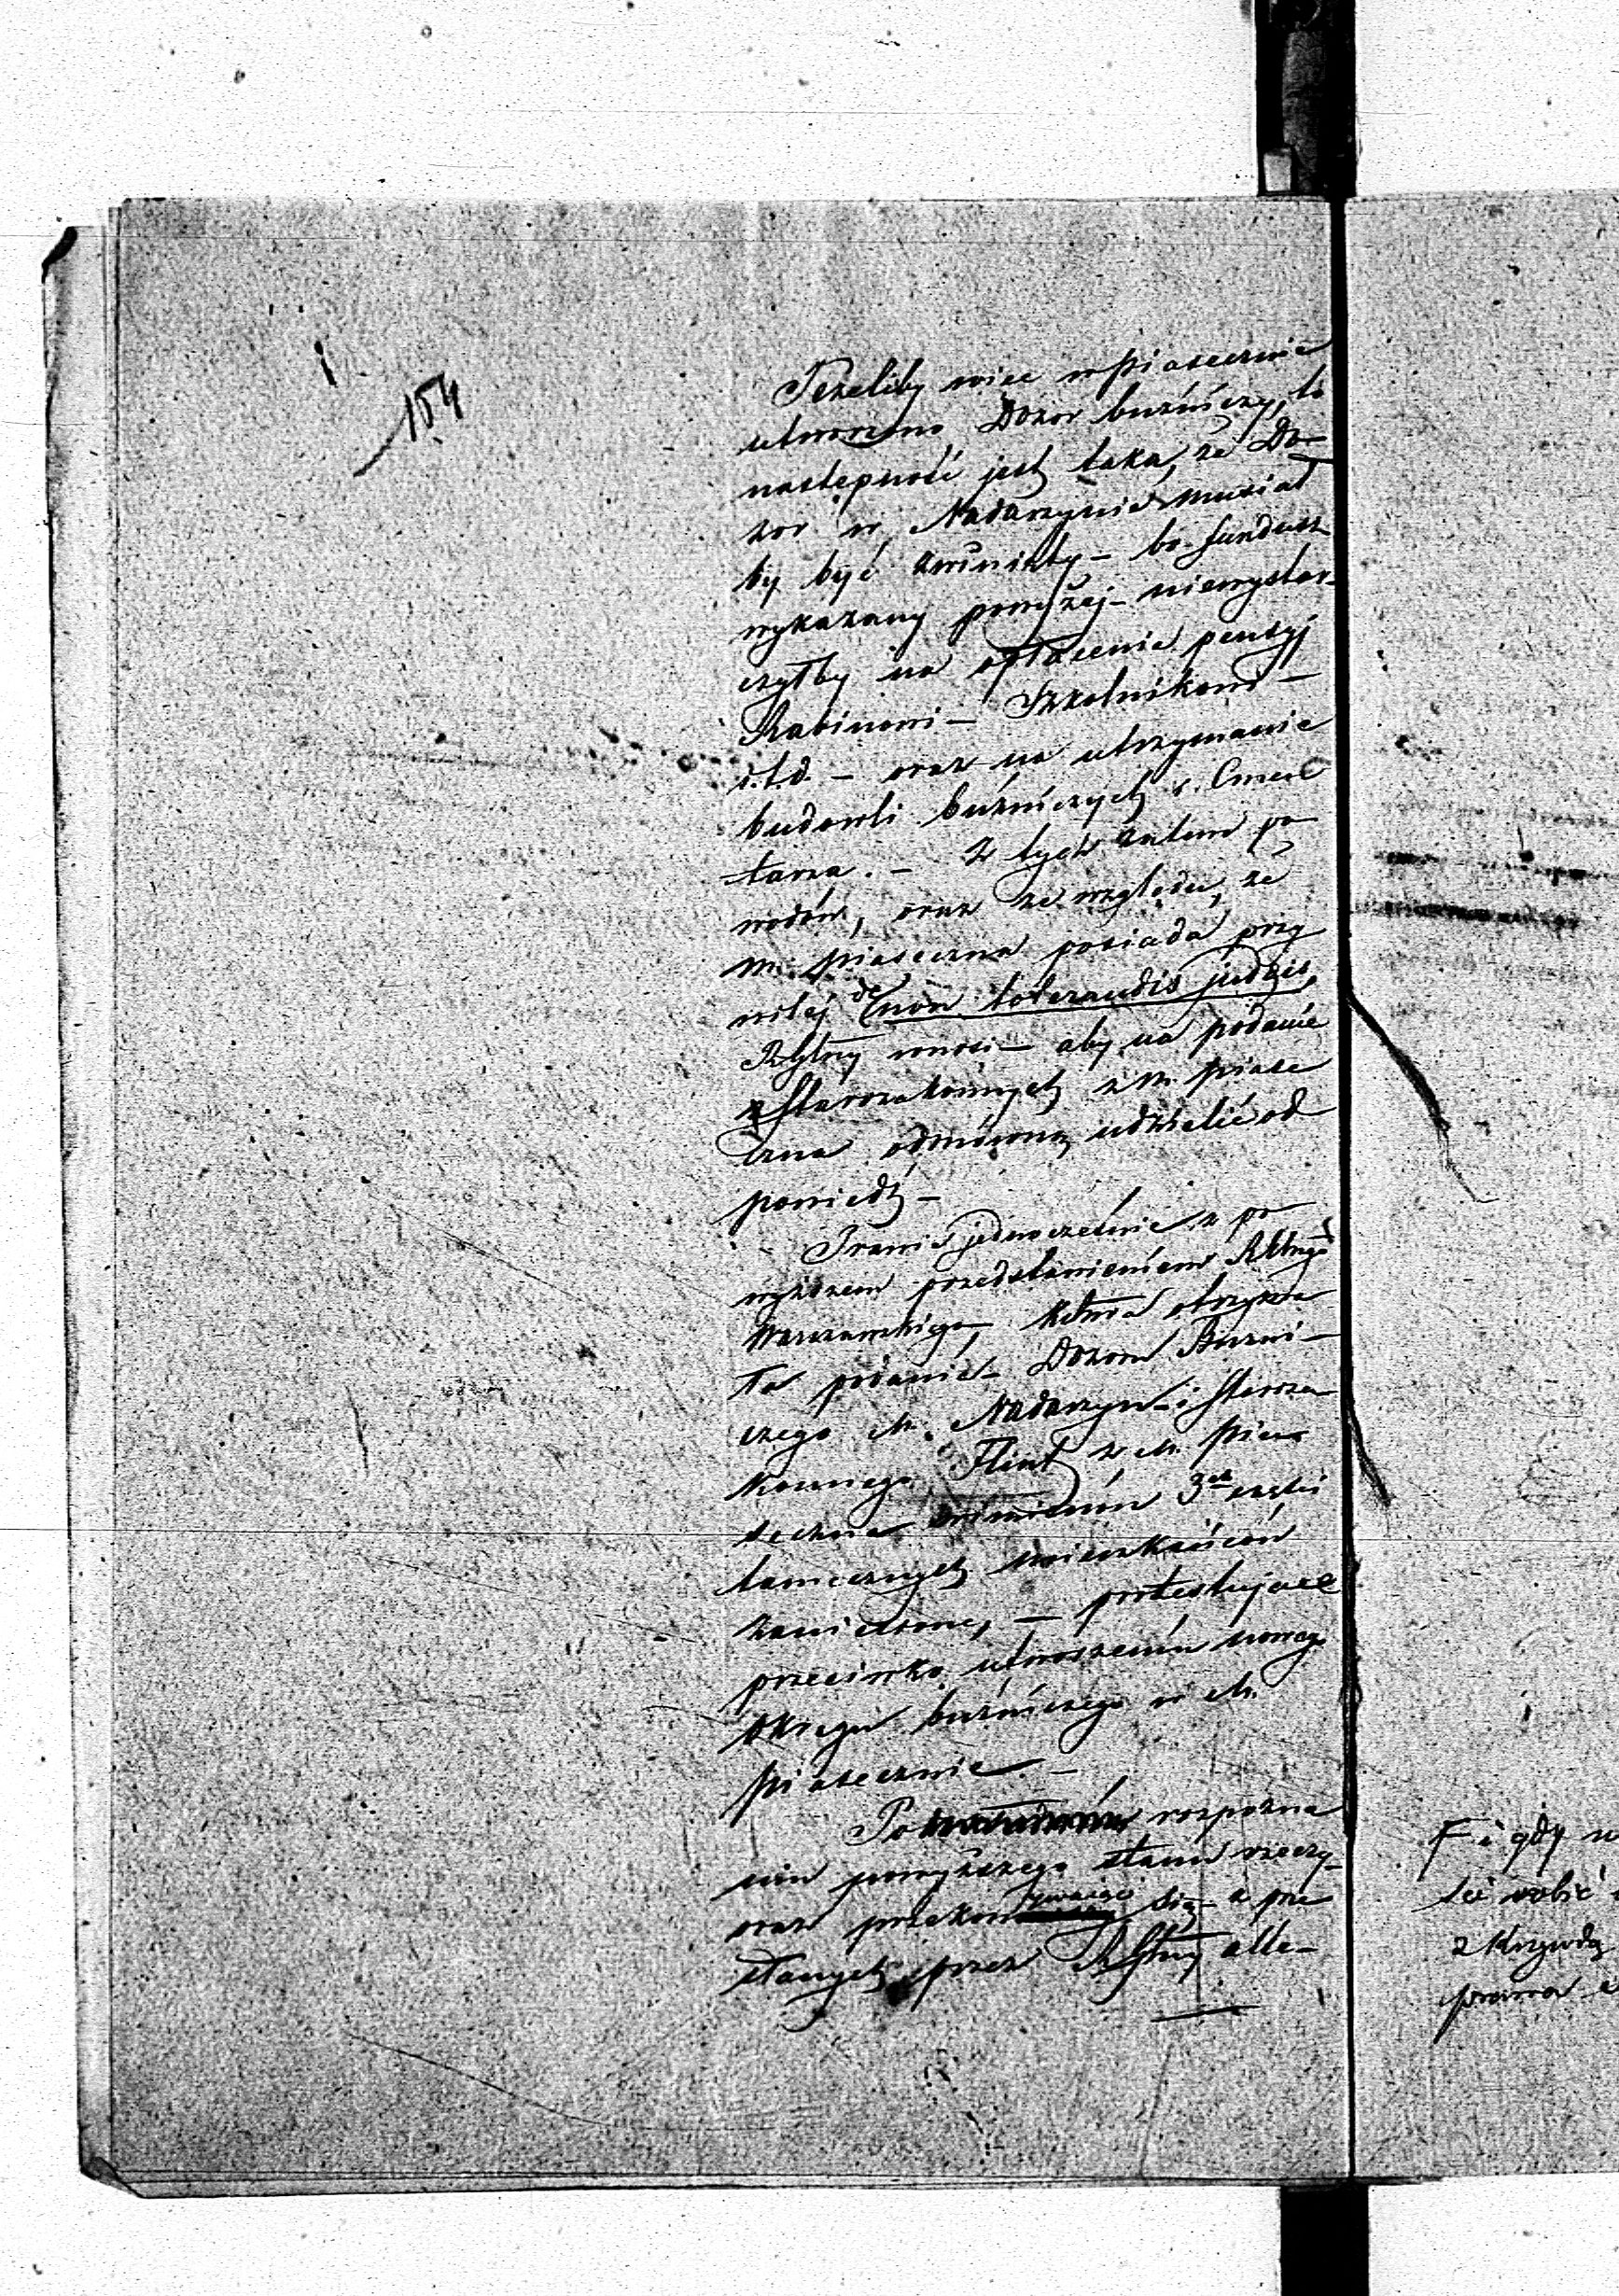 154
Jeżeliby więc w Piasecznie
utworzono Dozor bużniczy, to
następność jest taka, że Do-
zor w Nadarzynie musiał
by być zwinięty – bo fundusz
wykazany powyżej – niewystar-
czyłby na opłacenie pensyj
Rabinowi – Szkolnikowi –
i.t.d. – oraz na utrzymanie
budowli bużniczych i Cmen
tarza. – Z tych zatem po
wodów, oraz ze względu, że
m. Piaseczna posiada przy
wilej de non tolerandis judæis,
wnosi – aby na podanie
Starozakonnych z m. Piase
czna odmowną udzielić od
powiedź –
Prawie jednocześnie z po
wyższem przedstawieniem
Warszawskiego, otrzyma
ła podanie – Dozoru Bużni-
czego M. Nadarzyn – i Staroza
konnego Flint z M. Pia
seczna imieniem 3ch części
tamecznych mieszkańców
zaniesione, – protestujące
przeciwko utworzeniu nowego
Okręgu bużniczego w M.
Piasecznie. –
Po rozpozna
niu powyższego stanu rzeczy –
oraz przekonywając się z prze
słanych przez alle-
F i gdy
z krzywdą
prawa